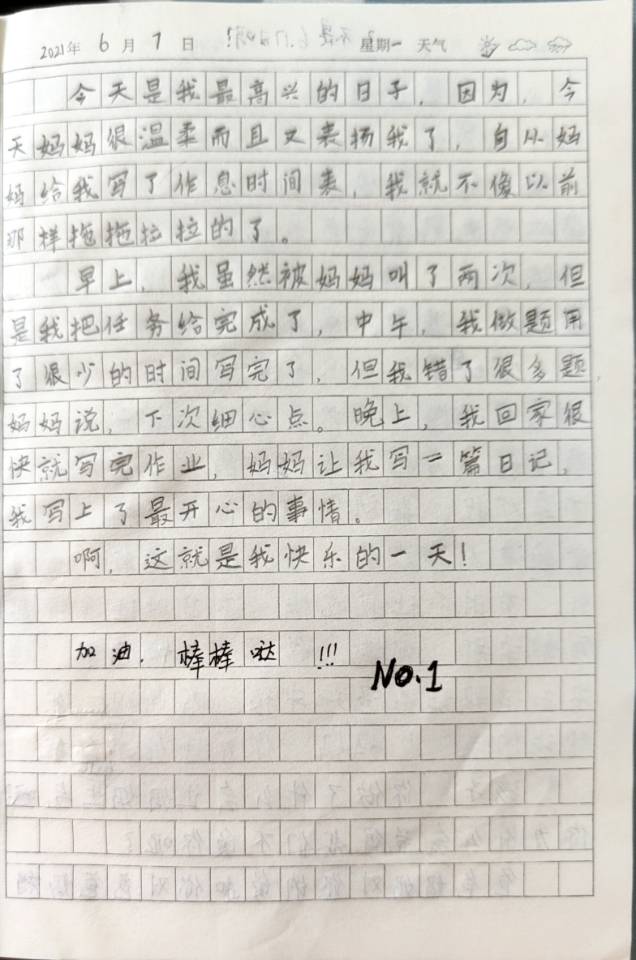 2021年 6 月 7 日 星期一 天气
今天是我最高兴的日子，因为，今
天妈妈很温柔而且又表扬我了，自从妈
妈给我写了作息时间表，我就不像以前
那样拖拖拉拉的了。
早上，我虽然被妈妈叫了两次，但
是我把任务给完成了，中午，我做题用
了很少的时间写完了，但我错了很多题，
妈妈说，下次细心点。晚上，我回家很
快就写完作业，妈妈让我写一篇日记，
我写上了最开心的事情。
啊，这就是我快乐的一天！
加油，棒棒哒!!!
No.1